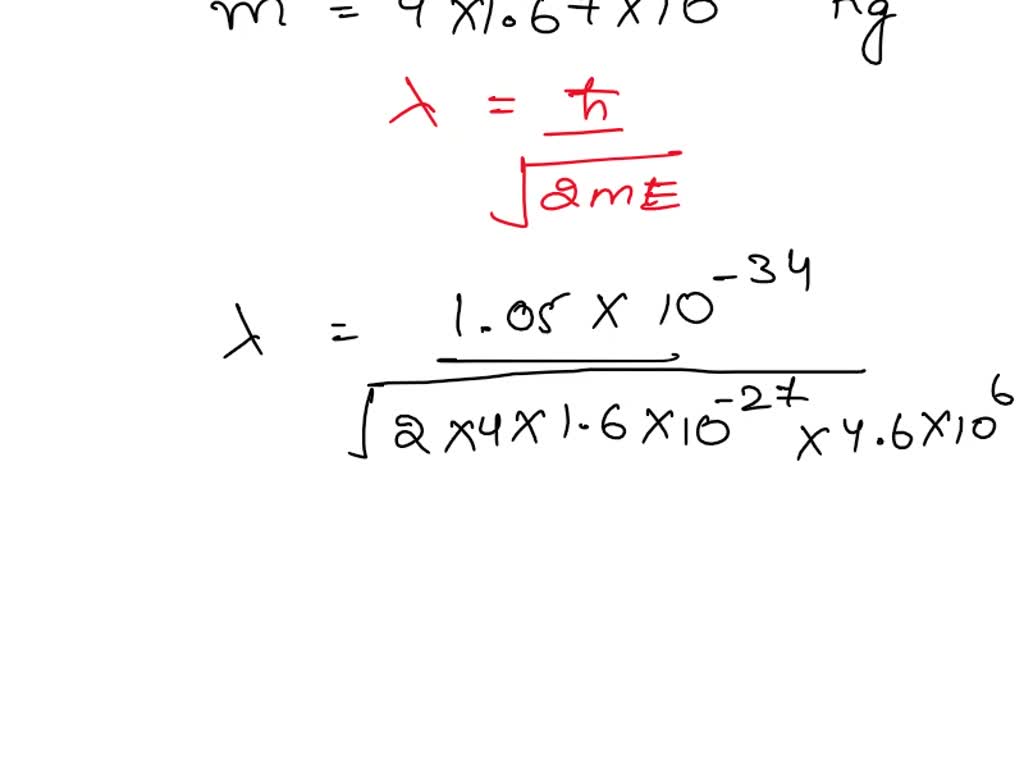 m = 4 × 1.67 × 10 kg
λ = ħ
√2mE
λ = 1.05 × 10^-34
√2 × 4 × 1.6 × 10^-27 × 4.6 × 10^6